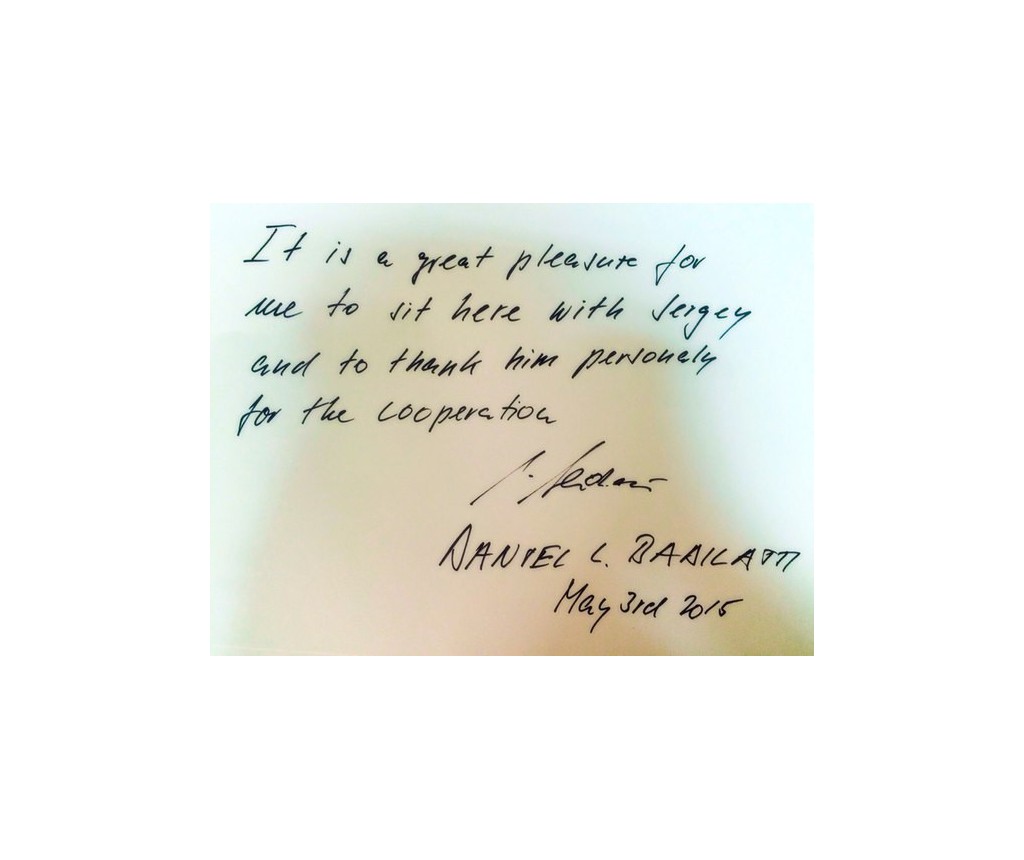 It is a great pleasure for
me to sit here with Sergey
and to thank him personaly
for the cooperation
DANIEL L.
May 3rd 2015